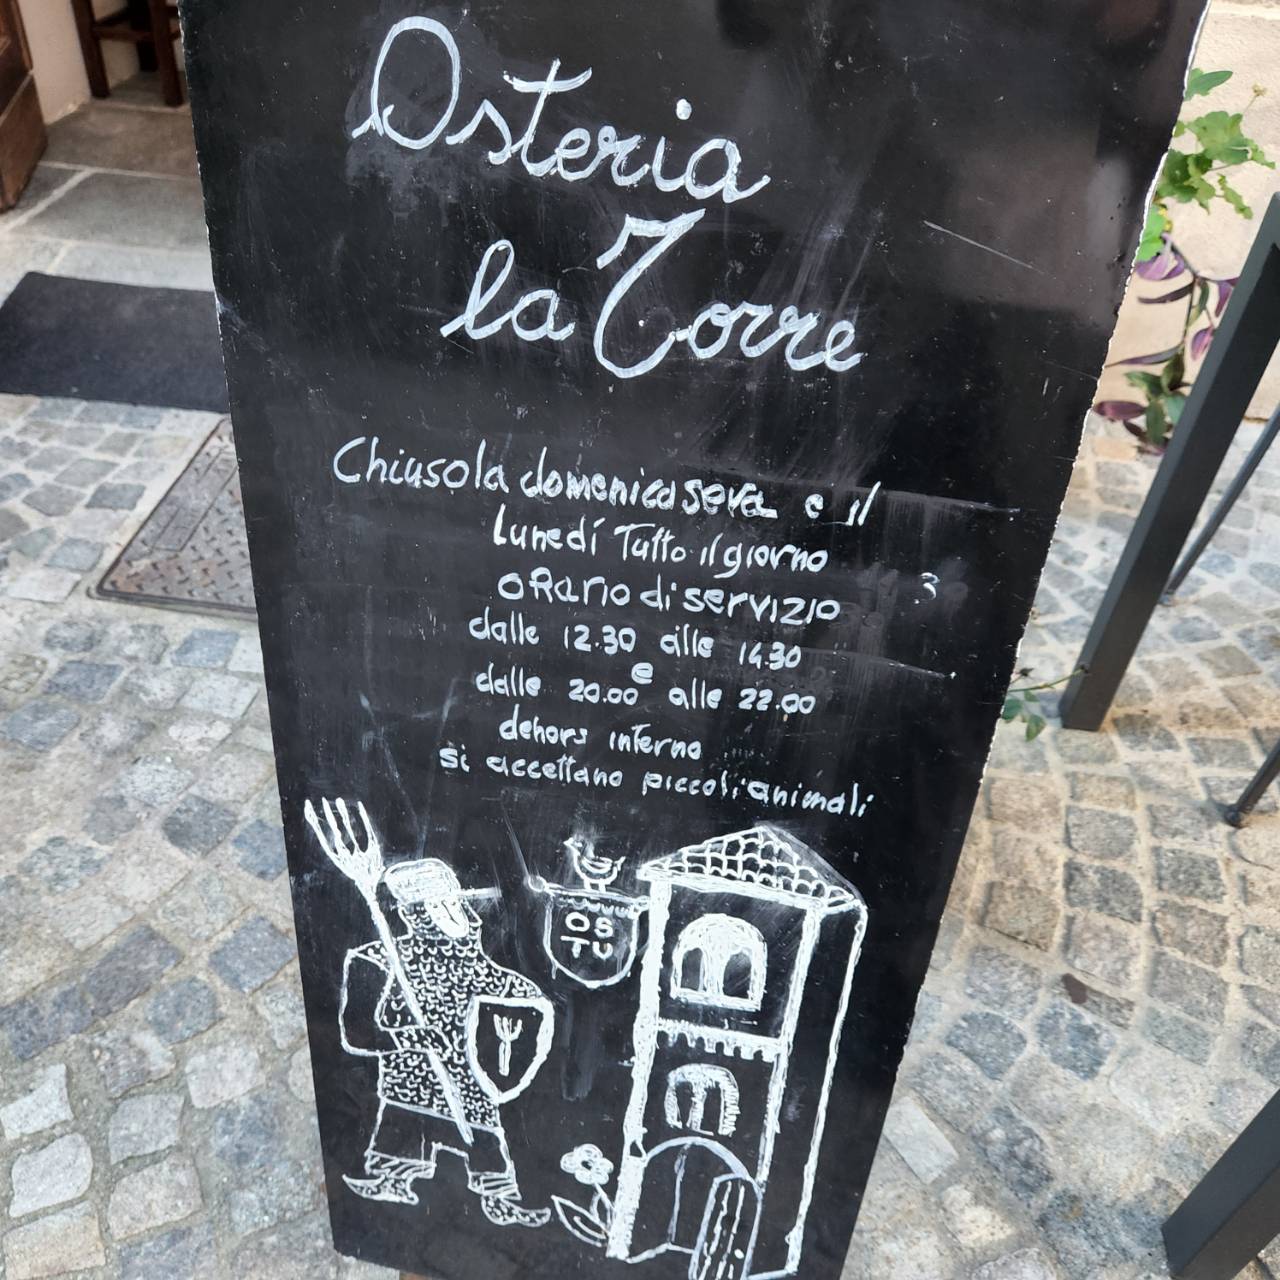 Osteria
la Torre
Chiuso la domenica sera e il
Lunedí Tutto il giorno
oRario di servizio
dalle 12.30 alle 14.30
e
dalle 20.00 alle 22.00
dehors interno
si accettano piccoli animali
OS
TU